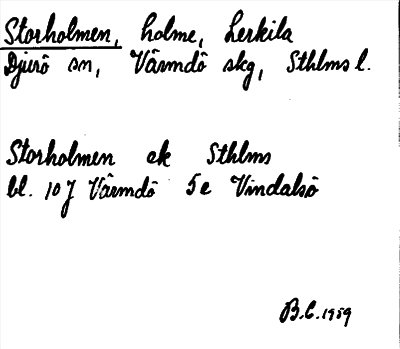 Storholmen, holme, Lerkila
Djurö sn, Värmdö skg, Sthlms l.
Storholmen ek Sthlms
bl. 107 Värmdö 5e Vindalsö
B.C. 1959